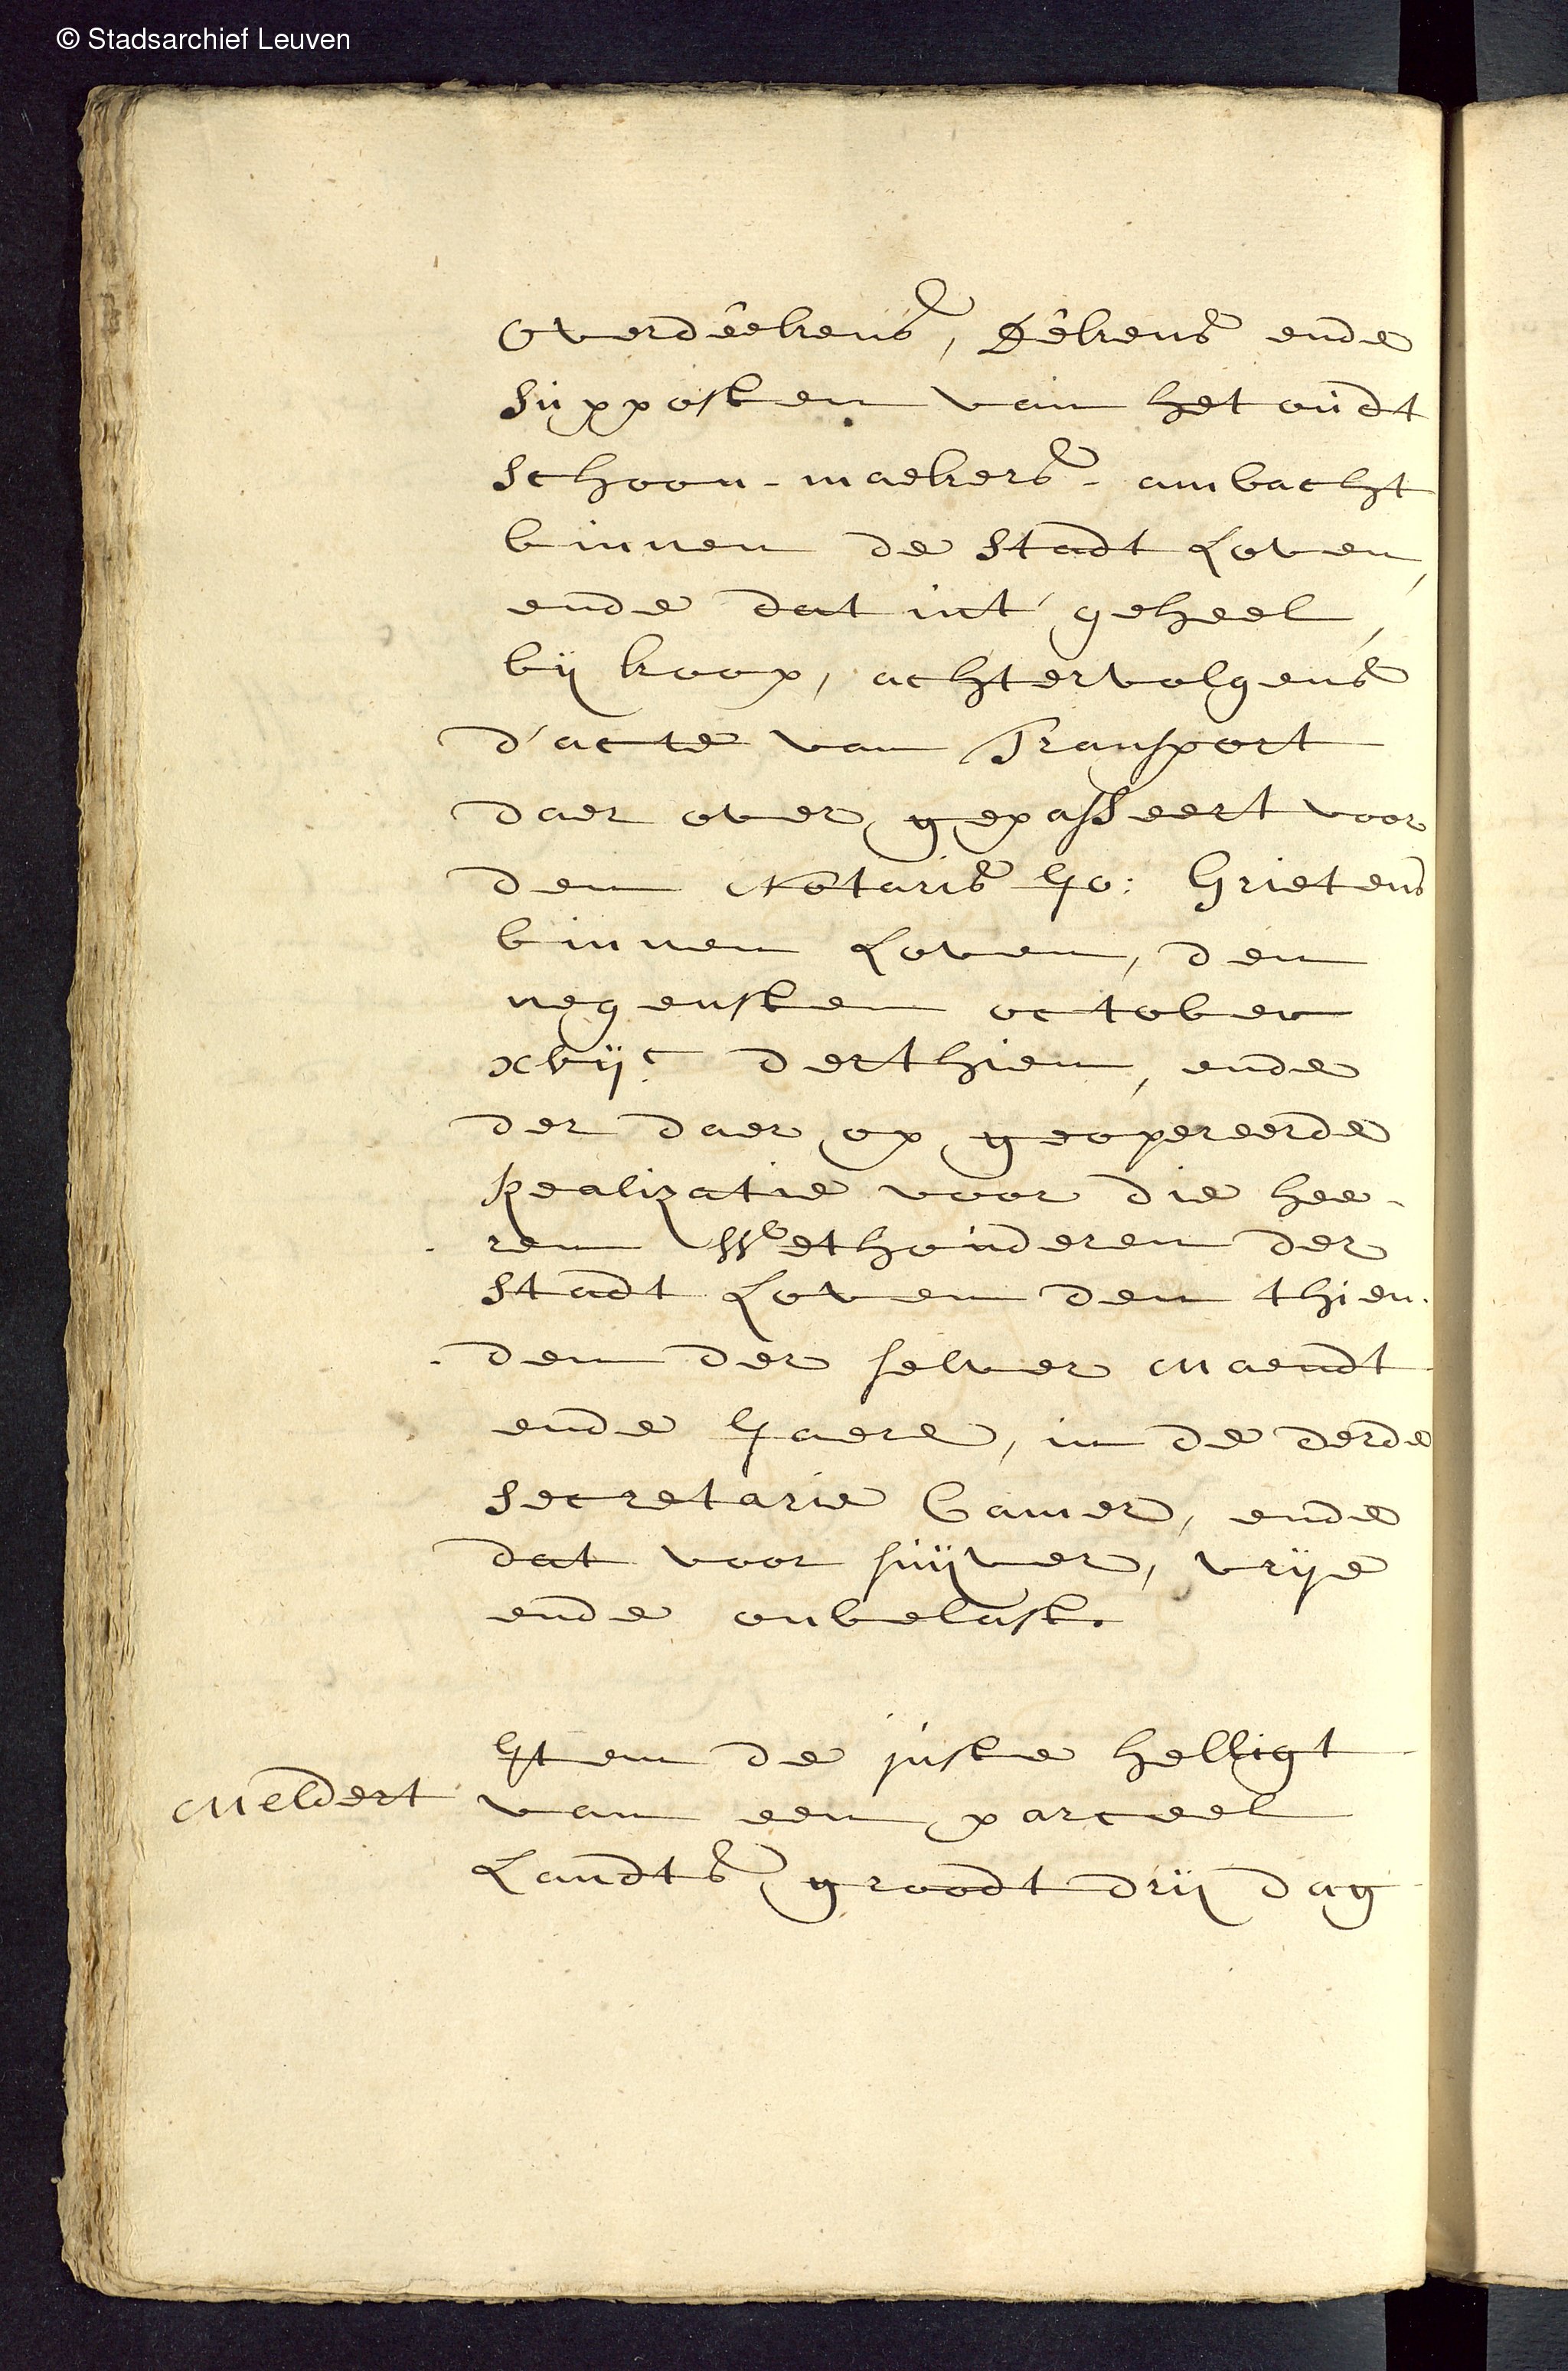 © Stadsarchief Leuven
Overdêekens, Dêkens ende
Supposten van het oudt
Schoon-maekers-ambacht
binnen de Stadt Loven,
ende dat int' geheel,
bij koop, achtervolgens
d'acte van Transport
daer over gepasseert voor
den Notaris Jo: Grietens
binnen Loven, den
negensten october
xvij.c derthien, ende
der daer op geopereerde
Realizatie voor die hee-
-ren Wethouderen der
Stadt Loven den thien-
-den der selver maendt
ende Jaere, in de derde
Secretarie Camer, ende
dat voor suijver, vrije
ende onbelast.
Item de juste helligt
Meldert
van een parceel
Landts groodt drij dag